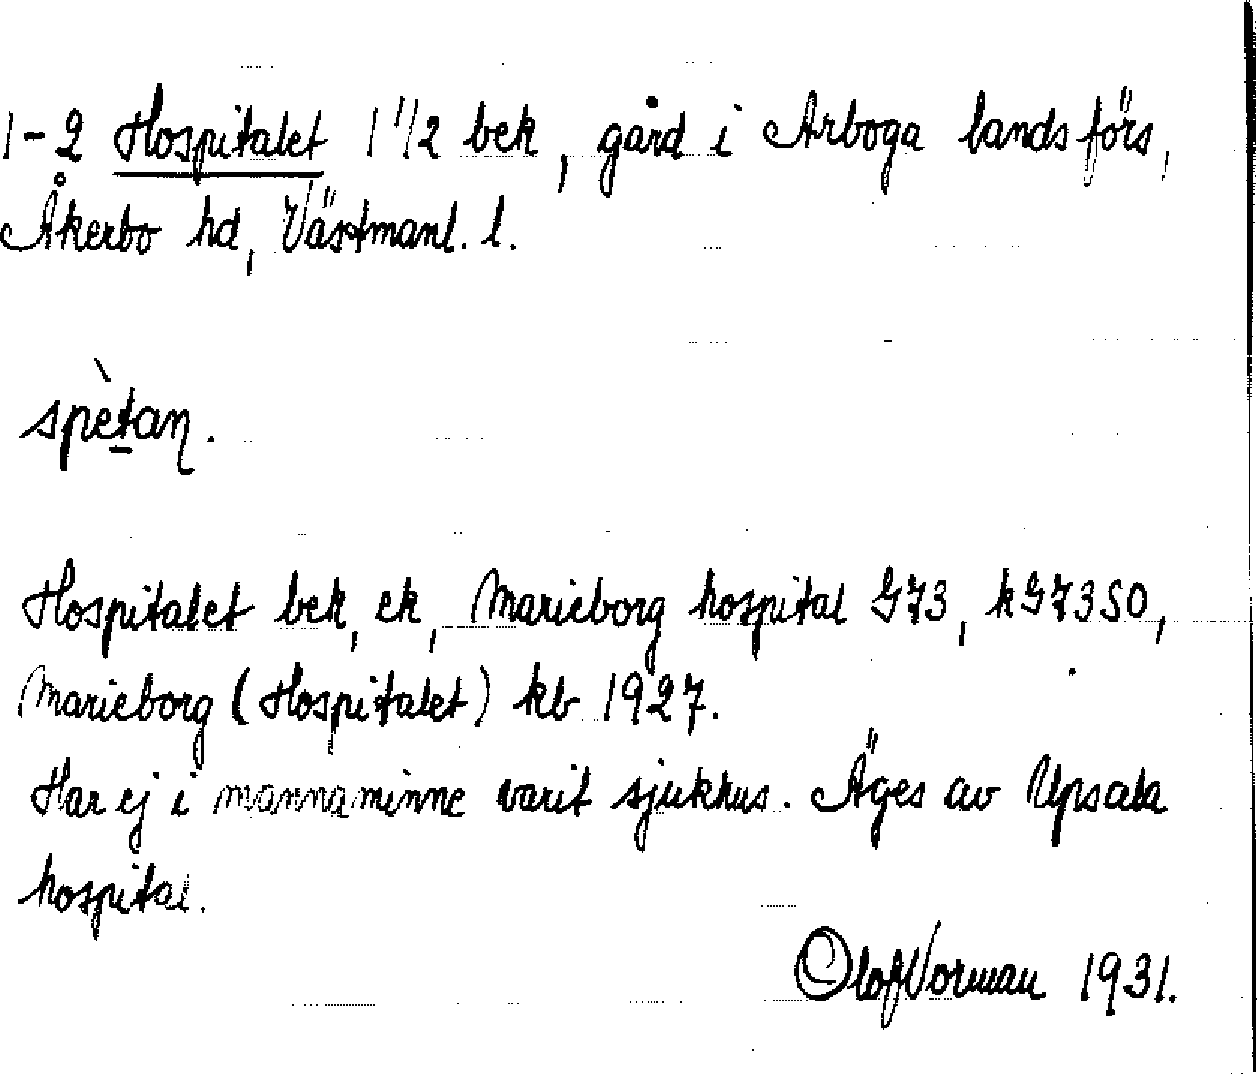 1-2 Hospitalet 1 1/2 bek, gård i Arboga landsförs,
Åkerbo hd, Västmanl. l.
spètan.
Hospitalet bek, ek, Marieborg hospital G73, kG73SO,
Marieborg (Hospitalet) kb 1927.
Har ej i mannaminne varit sjukhus. Äges av Upsala
hospital.
Olof Vorman 1931.